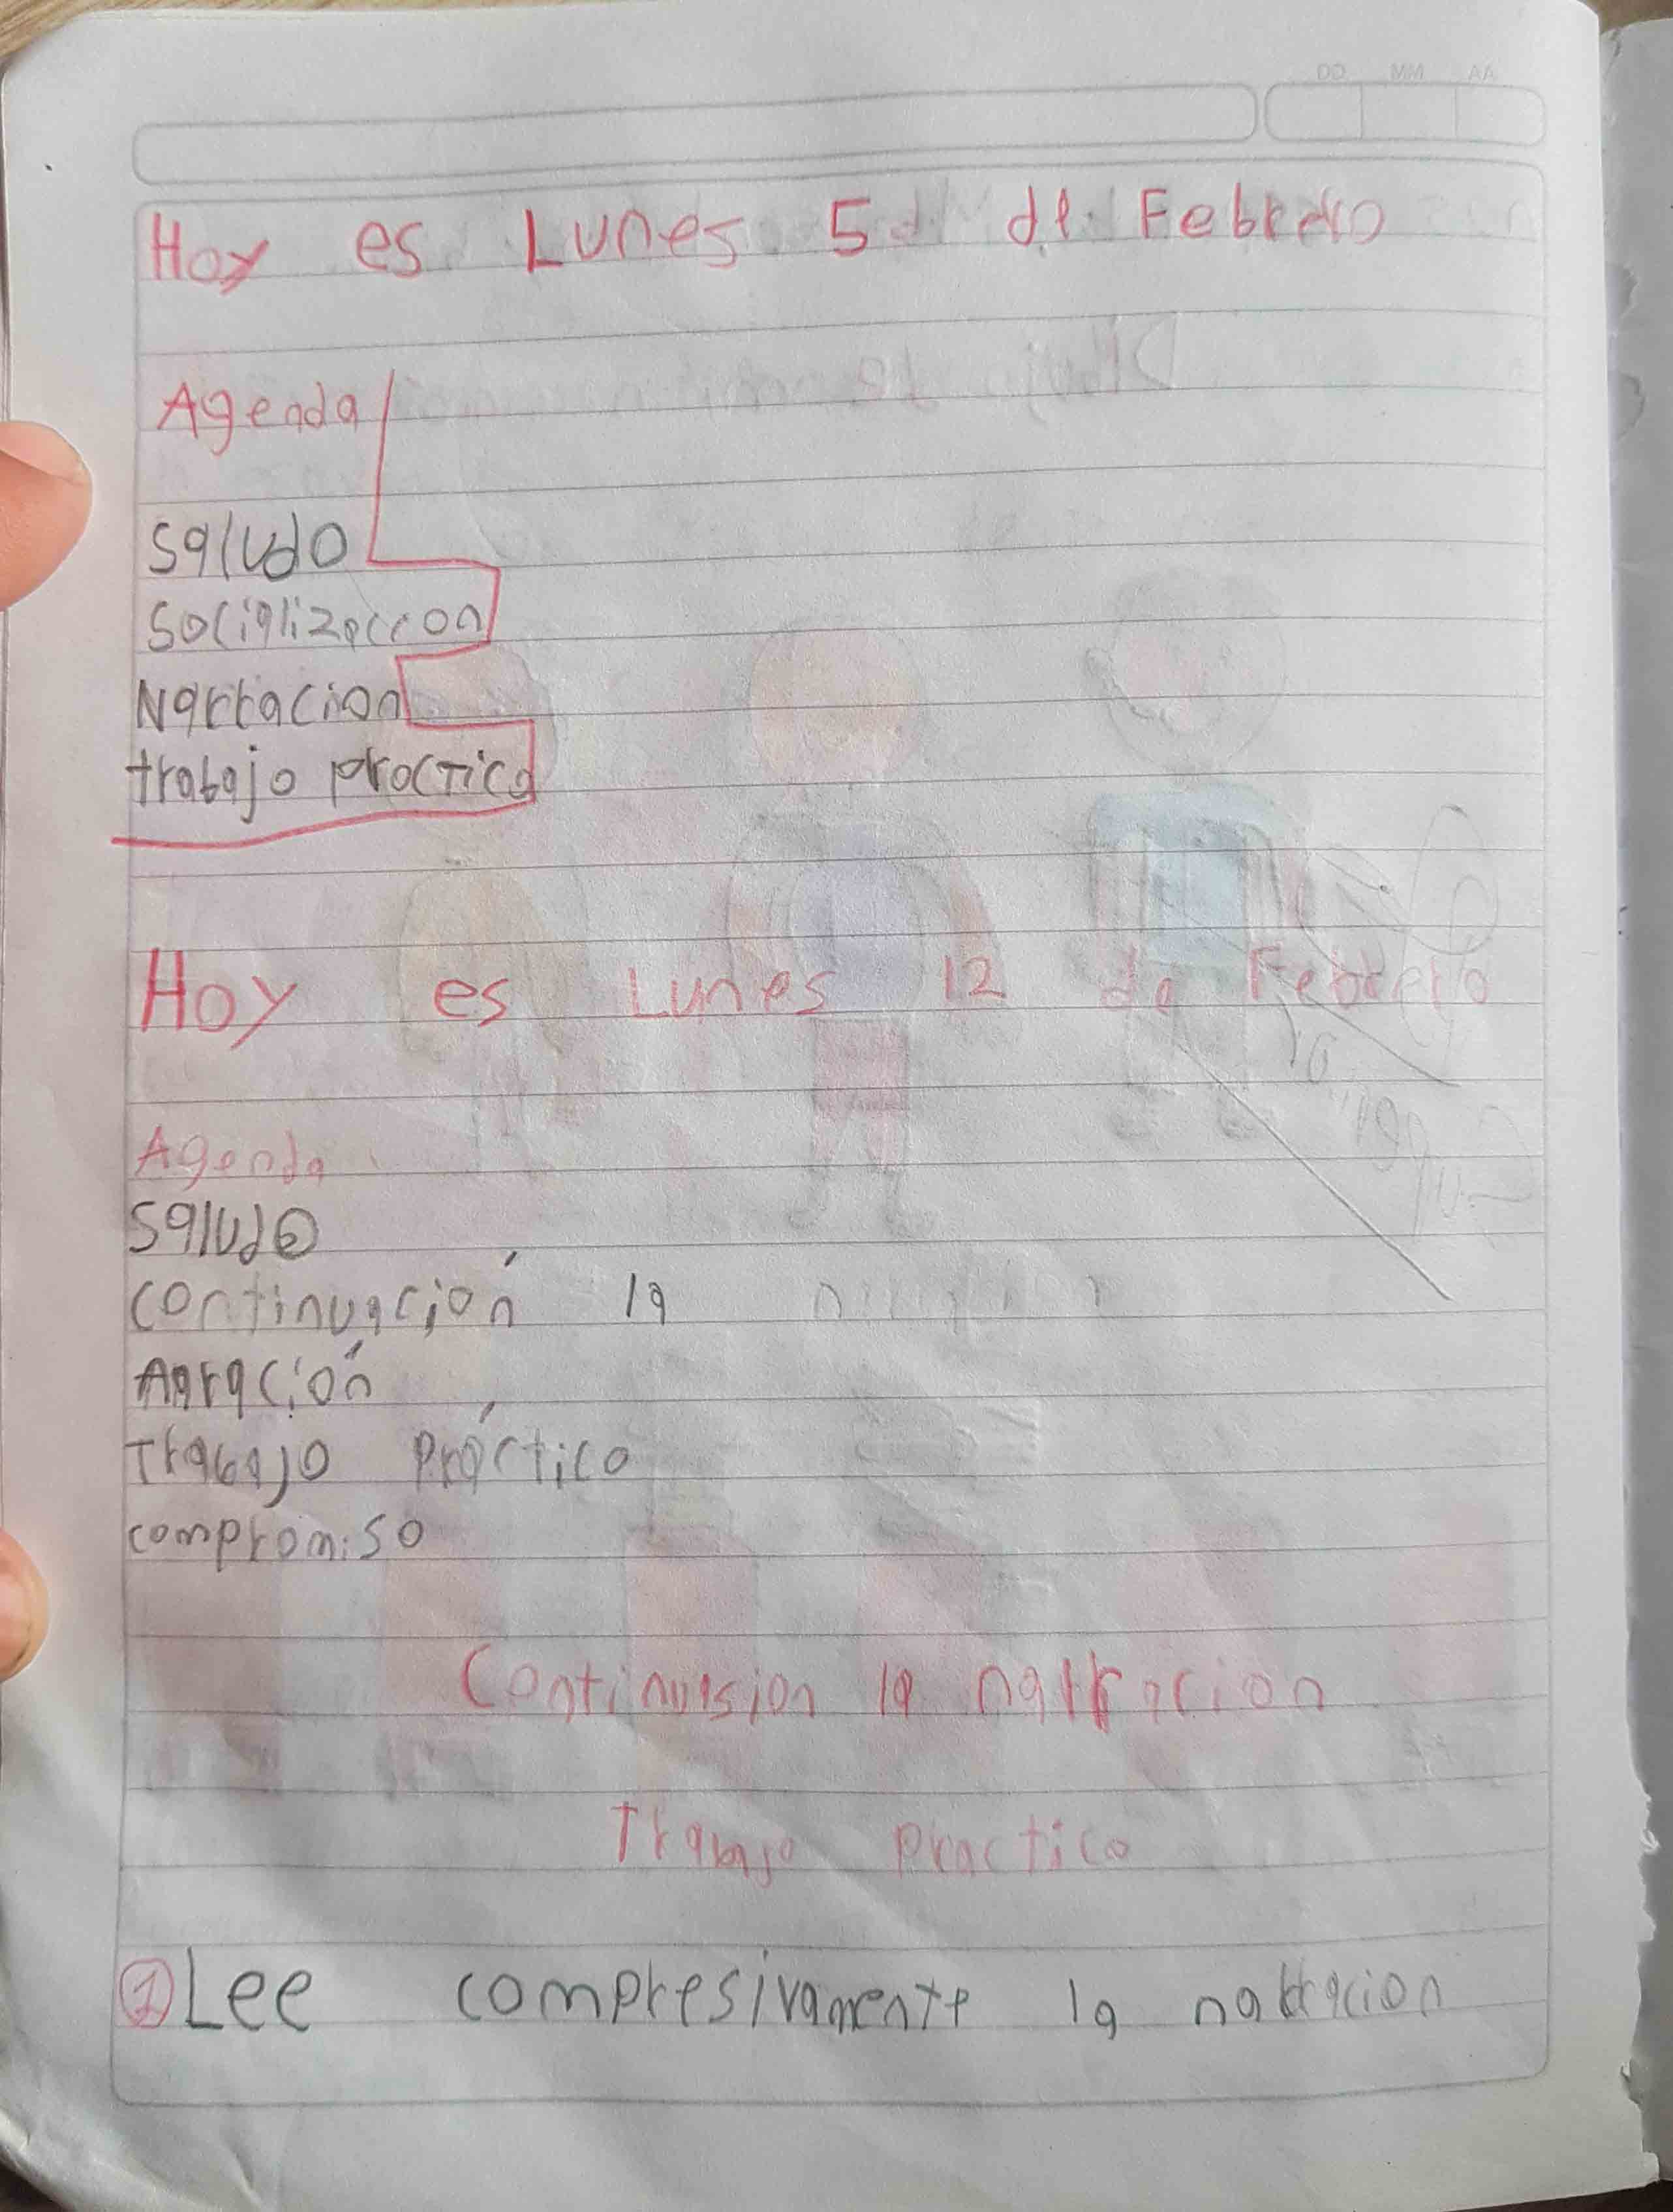 DD MM AA
Hoy es Lunes 5 de Febrero
Agenda
Saludo
Sociglizaccon
Narracion
trabajo practico
Hoy es Lunes 12 de Febrero
Agenda
Saludo
continuación la
Agración
Trabajo Práctico
compromiso
Continuision la narracion
Trabajo practico
1 Lee compresivamente la narracion